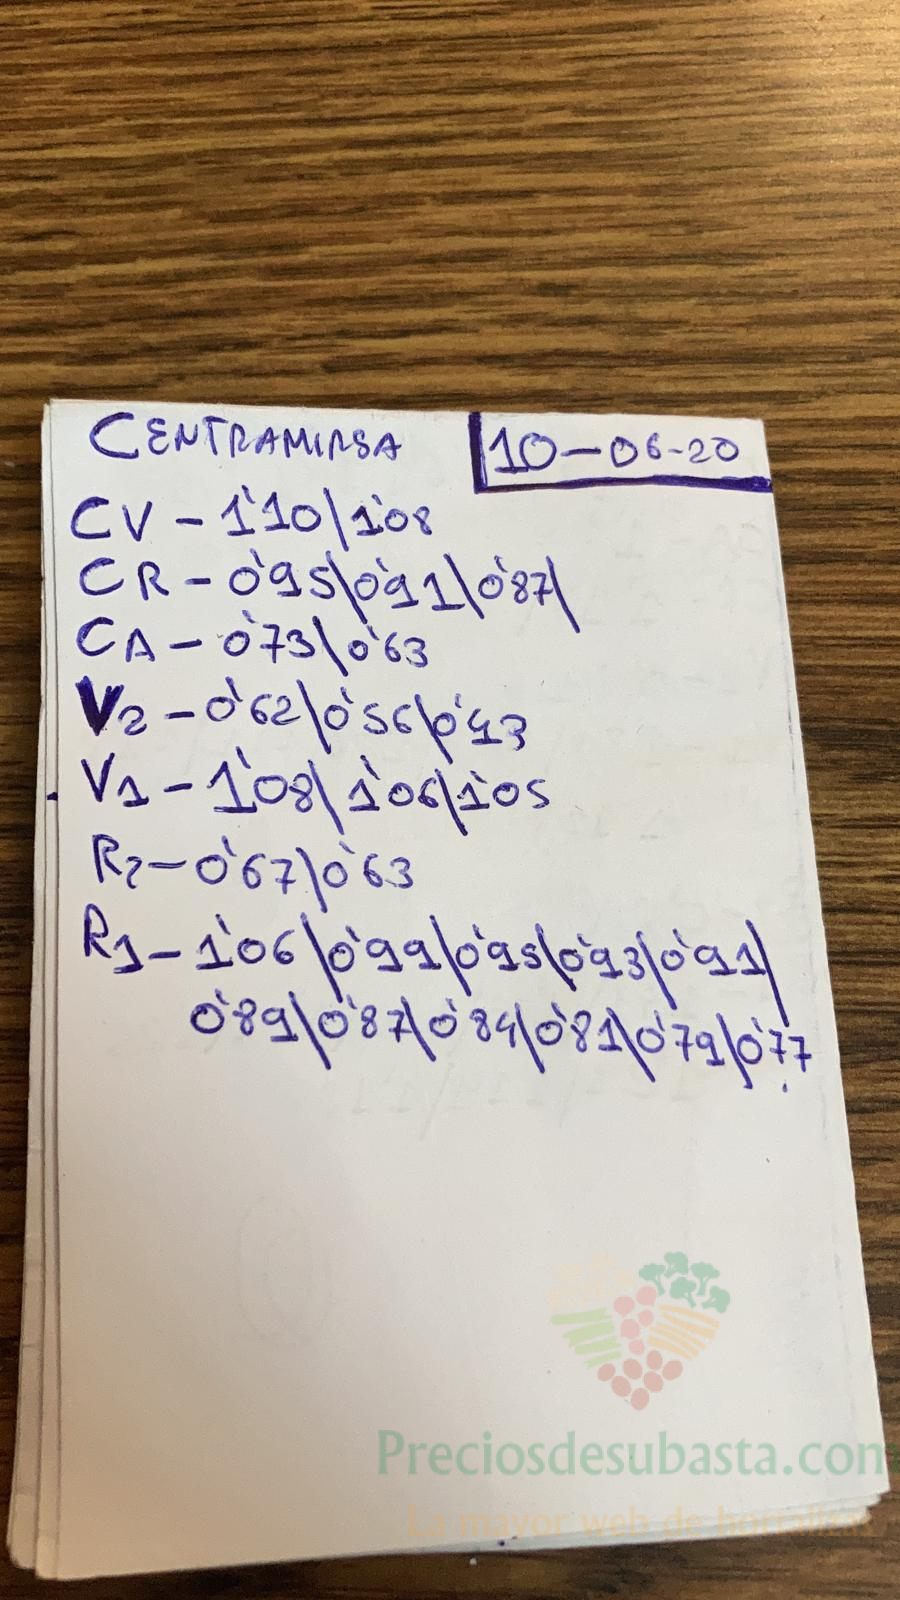 CENTRAMIRSA 10-06-20
CV - 1'10/1'08
CR - 0'95\0'91\0'87\
CA - 0'73\0'63
V2 - 0'62\0'56\0'43
V1 - 1'08\1'06\1'05
R2 - 0'67\0'63
R1 - 1'06\0'99\0'95\0'93\0'91\
0'89\0'87\0'84\0'81\0'79\0'77
Preciosdesubasta.com
La mayor web de hortalizas